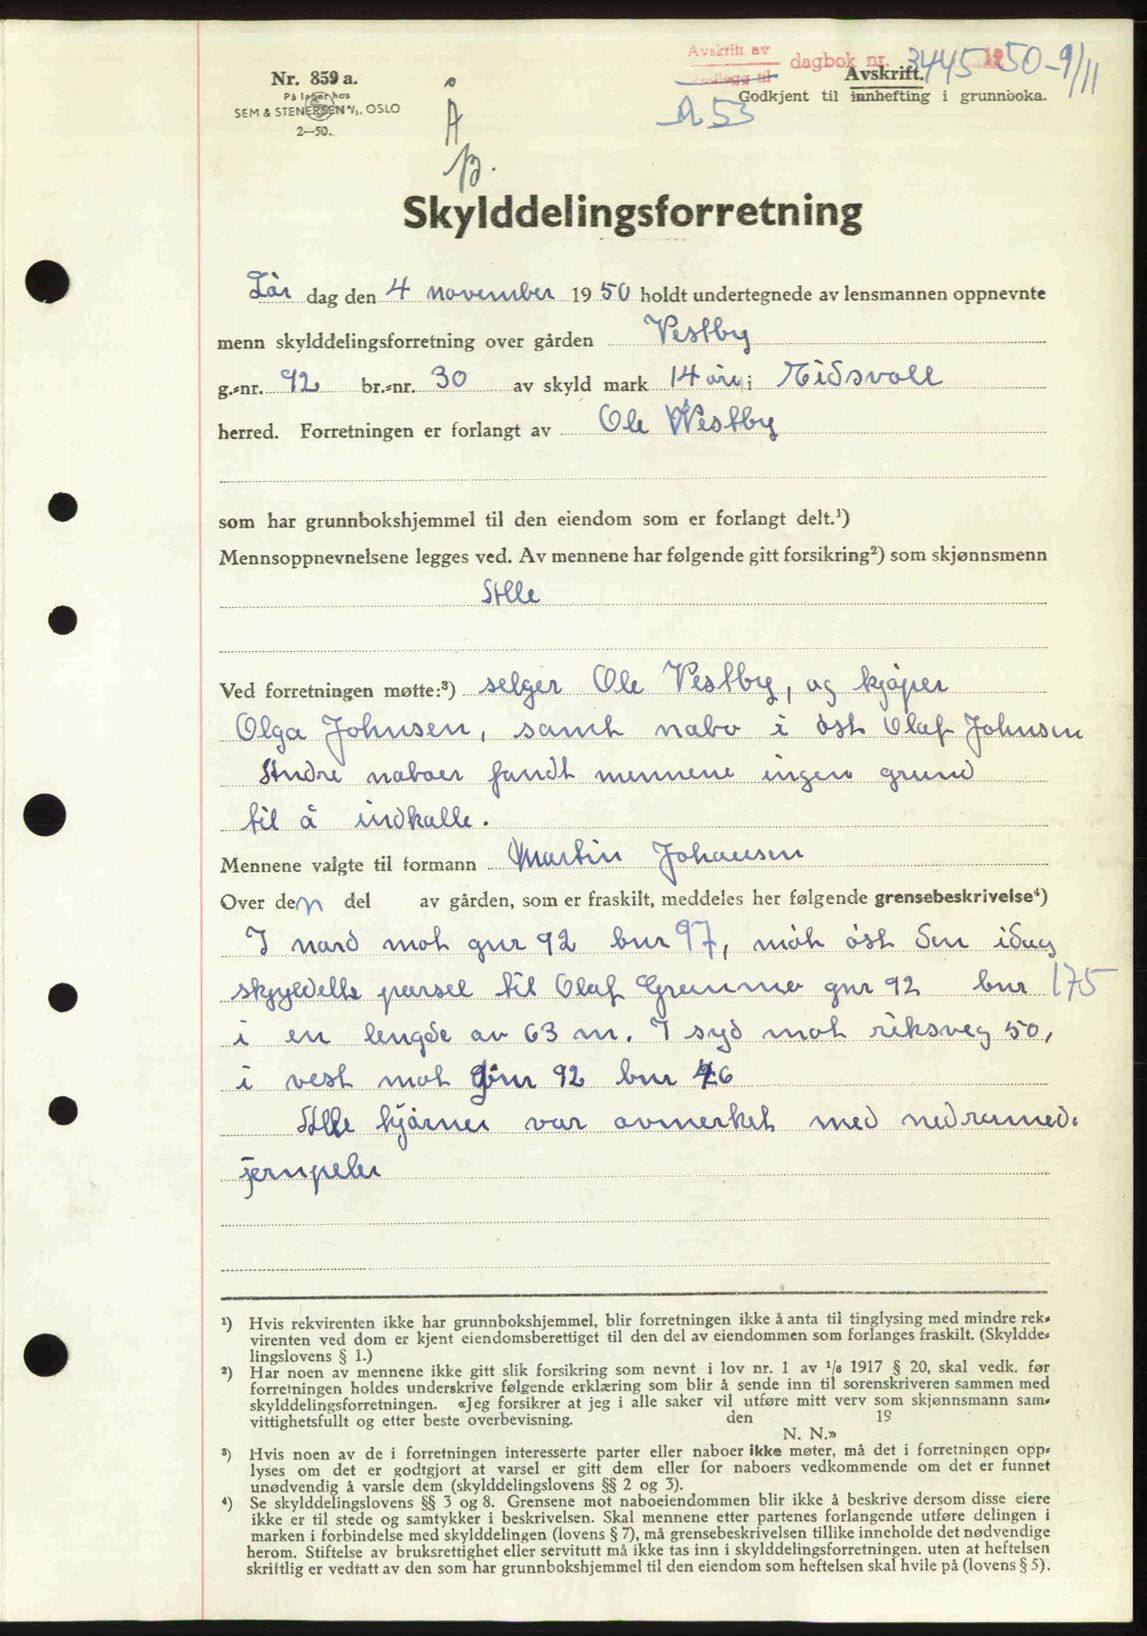 Avskrift av dagbok nr. 3445 1950-9/11
vedlegg til Avskrift.
Godkjent til innhefting i grunnboka.
A 53
Nr. 859 a.
På lager hos
SEM & STENERSEN A/S, OSLO
2—50.
Å
Skylddelingsforretning
Lør dag den 4 november 1950 holdt undertegnede av lensmannen oppnevnte
menn skylddelingsforretning over gården Vestby
g.-nr. 92 br.-nr. 30 av skyld mark 14 øre i Eidsvoll
herred. Forretningen er forlangt av Ole Westby
som har grunnbokshjemmel til den eiendom som er forlangt delt.¹)
Mennsoppnevnelsene legges ved. Av mennene har følgende gitt forsikring²) som skjønnsmenn
Alle
Ved forretningen møtte:³) selger Ole Vestby, og kjøper
Olga Johnsen, samt nabo i øst Olaf Johnsen
Andre naboer fandt mennene ingen grund
til å indkalle.
Mennene valgte til formann Martin Johansen
Over den del av gården, som er fraskilt, meddeles her følgende grensebeskrivelse⁴)
I nord mot gnr 92 bnr 97, mot øst den idag
skyldelte parsel til Olaf gnr 92 bnr 175
i en lengde av 63 m. I syd mot riksveg 50,
i vest mot gnr 92 bnr 46
Alle hjørner var avmerket med nedramed.
jernpeler
¹) Hvis rekvirenten ikke har grunnbokshjemmel, blir forretningen ikke å anta til tinglysing med mindre rek-
virenten ved dom er kjent eiendomsberettiget til den del av eiendommen som forlanges fraskilt. (Skyldde-
lingslovens § 1.)
²) Har noen av mennene ikke gitt slik forsikring som nevnt i lov nr. 1 av 1/6 1917 § 20, skal vedk. før
forretningen holdes underskrive følgende erklæring som blir å sende inn til sorenskriveren sammen med
skylddelingsforretningen. «Jeg forsikrer at jeg i alle saker vil utføre mitt verv som skjønnsmann sam-
vittighetsfullt og etter beste overbevisning. den 19
N. N.»
³) Hvis noen av de i forretningen interesserte parter eller naboer ikke møter, må det i forretningen opp-
lyses om det er godtgjort at varsel er gitt dem eller for naboers vedkommende om det er funnet
unødvendig å varsle dem (skylddelingslovens §§ 2 og 3).
⁴) Se skylddelingslovens §§ 3 og 8. Grensene mot naboeiendommen blir ikke å beskrive dersom disse eiere
ikke er til stede og samtykker i beskrivelsen. Skal mennene etter partenes forlangende utføre delingen i
marken i forbindelse med skylddelingen (lovens § 7), må grensebeskrivelsen tillike inneholde det nødvendige
herom. Stiftelse av bruksrettighet eller servitutt må ikke tas inn i skylddelingsforretningen. uten at heftelsen
skriftlig er vedtatt av den som har grunnbokshjemmel til den eiendom som heftelsen skal hvile på (lovens § 5).